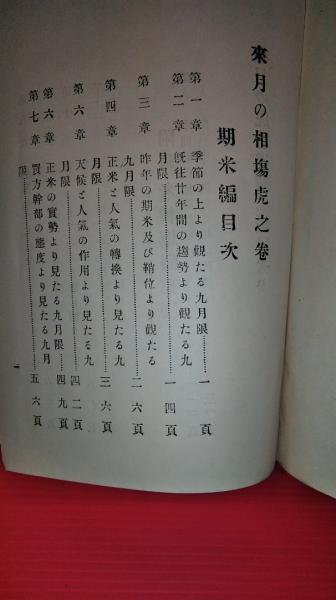 來月の相塲虎之卷
期米編目次
第一章 季節の上より觀たる九月限……………一頁
第二章 旣往廿年間の趨勢より觀たる九
月限……………一四頁
第三章 昨年の期米及び鞘位より觀たる
九月限……………二六頁
第四章 正米と人氣の轉換より見たる九
月限……………三六頁
第六章 天候と人氣の作用より見たる九
月限……………四二頁
第六章 正米の實勢より見たる九月限……………四九頁
第七章 買方幹部の態度より見たる九月
限……………五六頁